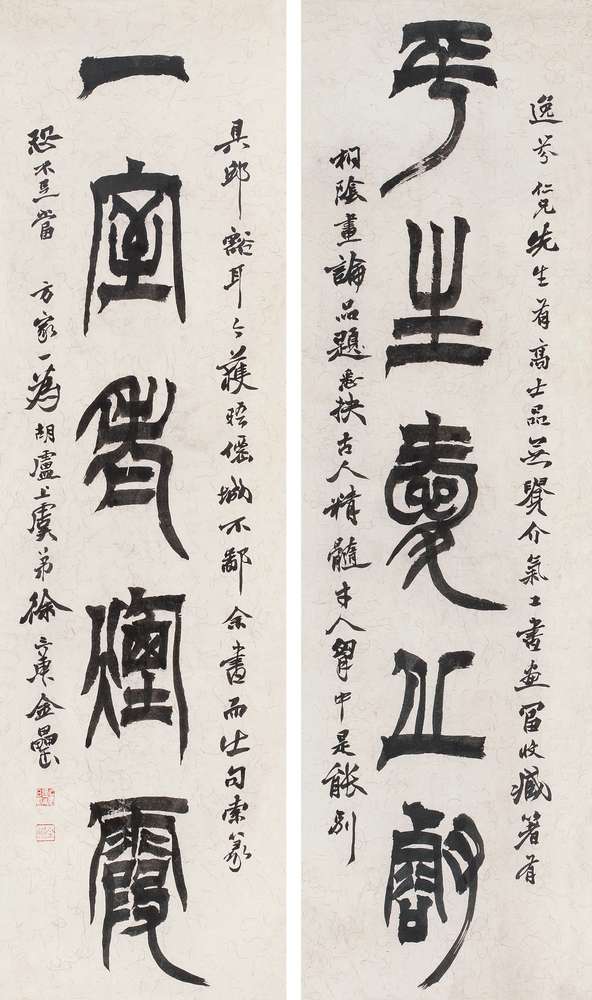 平生愛丘壑
一室看煙霞
逸芬仁兄先生有高士品無介氣工書畫富收藏箸有
桐陰畫論品題悉抉古人精髓人胷中是能別
具邱壑耳今獲晤僊城不鄙余書而出句索篆
恐不足當 方家一為胡盧上虞弟徐三庚金罍